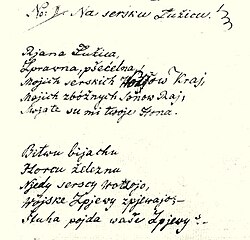 Na serbsku Łužicu.
Rjana Łužica,
Zprawna, pśećelna,
Mojich serskich Wótcow Kraj,
Mojich zbóžnych Sonow Raj,
Swjate su mi twoje Hona.
Bitwu bijachu
Horcu železnu
Niedy serscy Wótcojo,
Wójnske Zpjewy zpjewajo;
Štuha pojda waše Zpjewy?